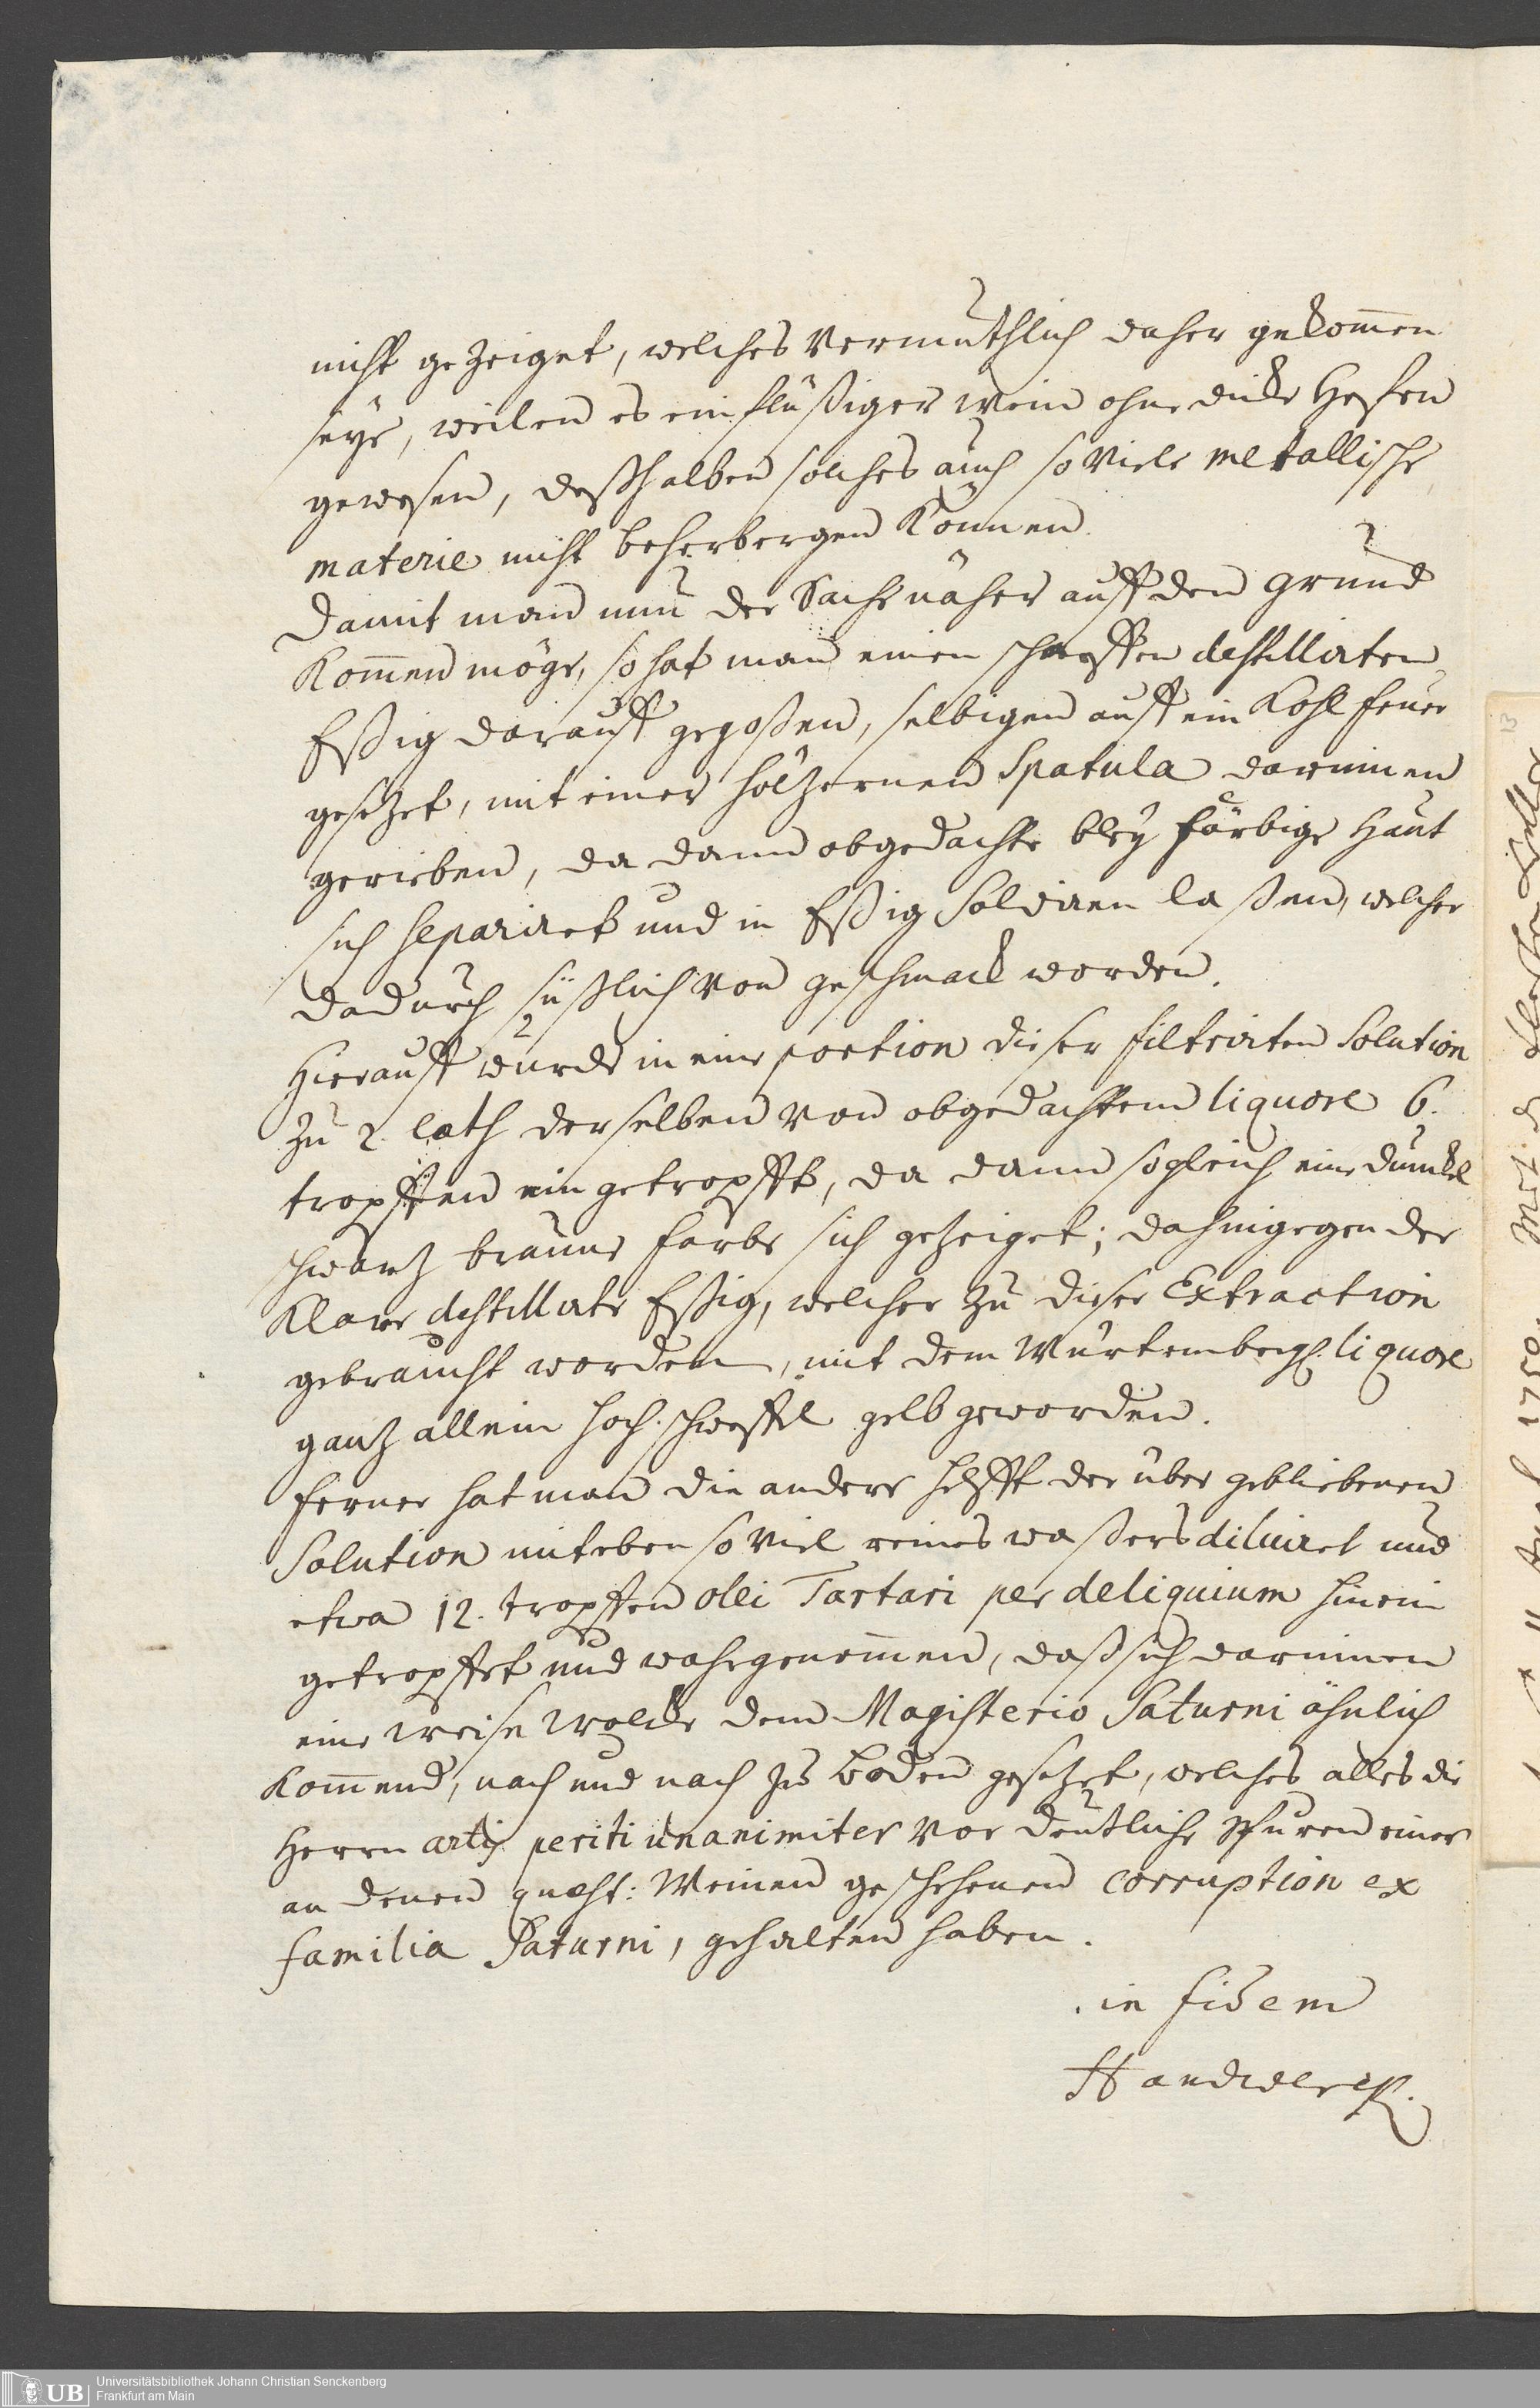 nicht gezeiget, welches vermuthlich daher gekom̄en
seye, weilen es ein flüßiger Wein ohne dicke Hefen
gewesen, deßhalben solches auch so viele metallische
materie nicht beherbergen können.
Damit man nun der Sache näher auff den Grund
kom̄en möge, so hat man einen scharffen destillirten
Eßig darauff gegoßen, selbigen auff ein Kohlfeuer
gesetzet, mit einer höltzernen Spatula darinnen
gerieben, da dann obgedachte bley färbige Haut
sich separiret und in Eßig solviren laßen, welcher
dadurch süßlich von geschmack worden.
Hierauff wurde in eine portion dieser filtrirten Solution
zu 2. loth derselben von obgedachtem liquore 6.
tropffen eingetropfft, da dann sogleich eine dunckel
schwartz braune farbe sich gezeiget; dahingegen der
Klare destillirte Eßig, welcher zu dieser Extraction
gebraucht worden, mit dem Würtembergl. liquore
gantz allein hoch schweffel gelb geworden.
Ferner hat man die andere helfft der übergebliebenen
Solution mit eben so viel reines waßers diluiret und
etwa 12. tropffen olei Tartari per deliquium hinein
getropffet und wahrgenom̄en, daß sich darinnen
eine weise Wolcke dem Magisterio Saturni ähnlich
kom̄end, nach und nach zu Boden gesetzet, welches alles die
Herrn artis periti unanimiter vor deutliche Spuren einer
an denen quæst: Weinen geschehenen corruption ex
familia Saturni, gehalten haben.
in fidem
Handwerck.
13
Universitätsbibliothek Johann Christian Senckenberg
Frankfurt am Main
UB